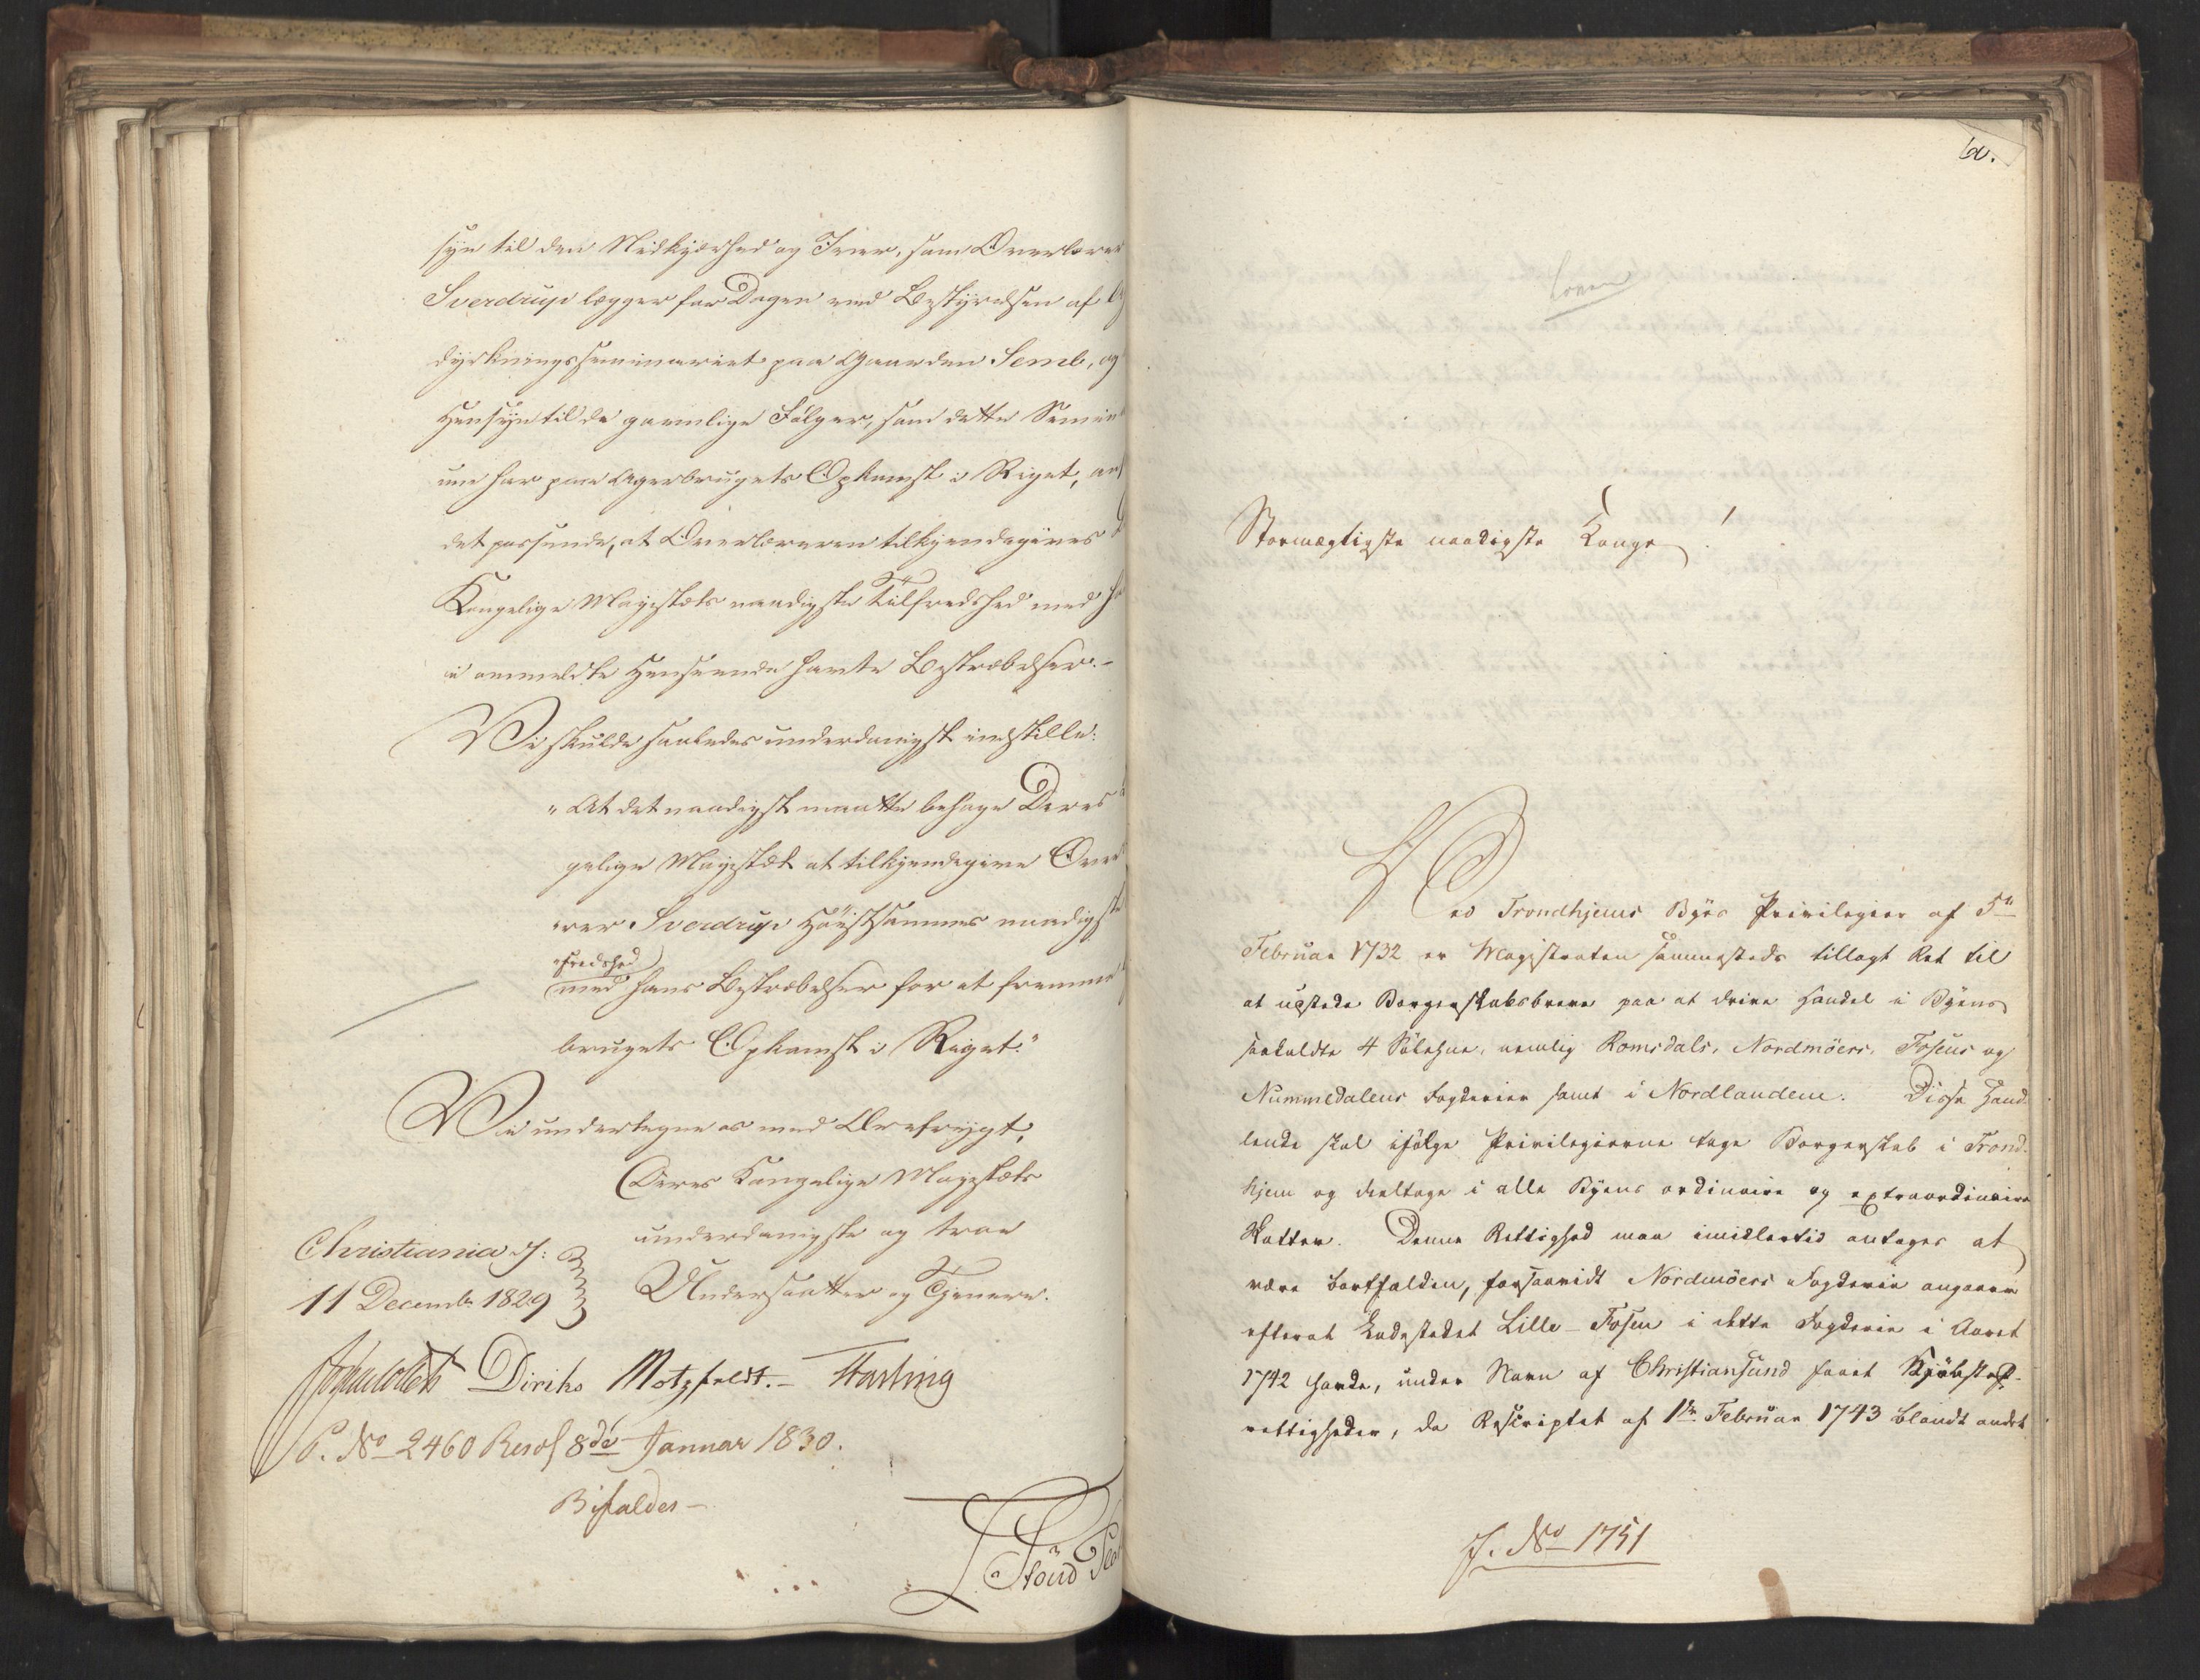 syn til den Nidkjærhed og Iver, som Overlærer
Sverdrup lægger for Dagen ved Bestyrelsen af
dyrkningsseminariet paa Gaarden Semb, og
Hensyn til de gavnlige Følger, som dette Semin
um har paa Agerbrugets Opkomst i Riget,
det passende, at Overlæreren tilkjendegives
Kongelige Majestæts naadigste Tilfredshed med
i anmeldte Henseende havte Bestræbelser.-
Vi skulde saaledes underdanigst indstille:
"At det naadigst maatte behage Deres
gelige Majestæt at tilkjendegive Over
rer Sverdrup Høistsammes naadigste
fredshed
med hans Bestræbelser for at fremme
brugets Opkomst i Riget."
Vi undertegne os med Ærefrygt,
Deres Kongelige Majestæts
underdanigste og troe
Christiania d:
Undersaatter og Tjenere.
11 Decemb. 1829
Diriks Motzfeldt.- Hasting
P. No 2460 Resol 8de Januar 1830.
Bifaldes-
Stormægtigste naadigste Konge!
Ved Trondhjems Byes Privilegier af 5te
Februar 1732 er Magistraten sammesteds tillagt Ret til
at udstede Borgerskabsbreve paa at drive Handel i Byens
saakaldte 4 Søelehne, nemlig Romsdals, Nordmöers, Fosens og
Nummedalens Fogderier samt i Nordlandene. Disse Hand-
lende skal ifølge Privilegierne tage Borgerskab i Trond-
hjem og deeltage i alle Byens ordinaire og extraordinaire
Skatter. Denne Rettighed maa imidlertid antages at
være bortfalden, forsaavidt Nordmöers Fogderie angaaer
efterat Ladestedet Lille-Fosen i dette Fogderie i Aaret
1742 havde, under Navn af Christiansund faaet Kjöbstad-
rettigheder, da Rescriptet af 1ste Februar 1743 blandt andet
J. No 1751